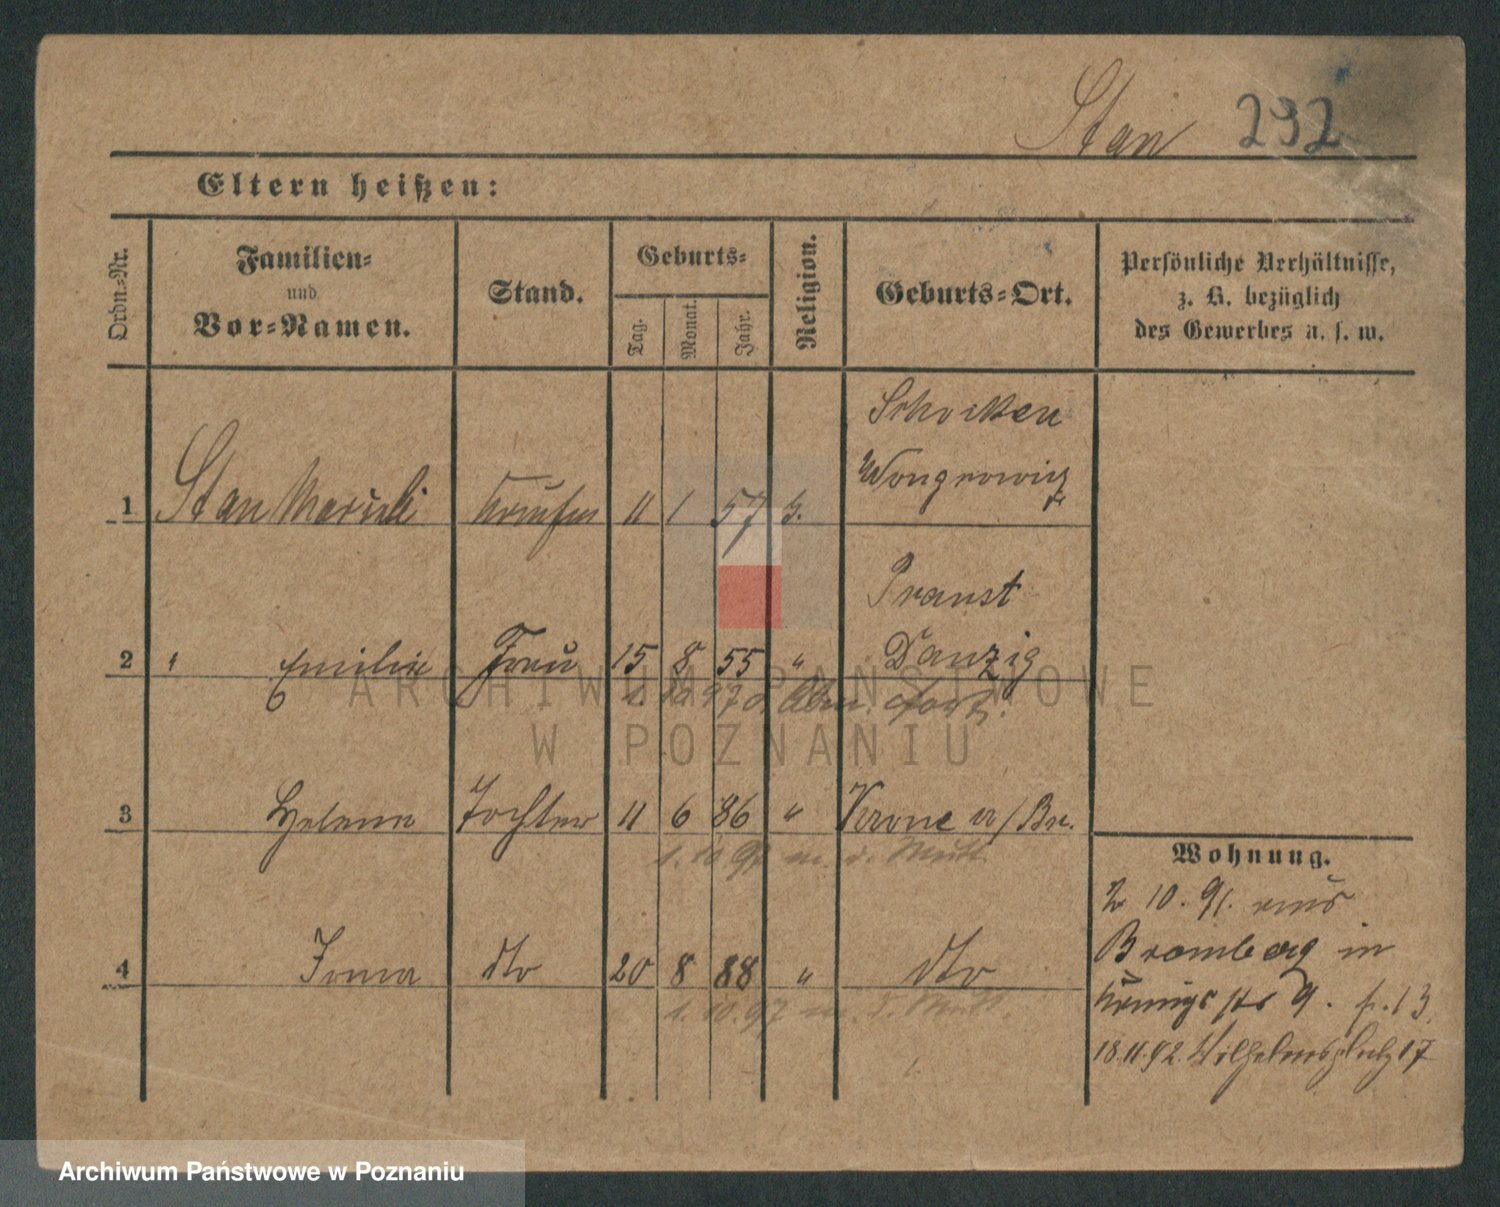 Stan 292
Eltern heißen:
Ordn.-Nr.
Familien-
und
Vor-Namen.
Stand.
Geburts-
Tag.
Monat.
Jahr.
Religion.
Geburts-Ort.
Persönliche Verhältnisse,
z. B. bezüglich
des Gewerbes u. s. w.
Schocken
Wongrowitz
1 Stan 11 1 57
Praust
2 " Emilie Frau 15 8 55 " Danzig
3 Helene Tochter 11 6 86 " Krone a/Br.
1. 10 97 m. d. Mutt.
4 Irma dto 20 8 88 " dto
1. 10. 97 m. d. Mutt.
Wohnung.
2 10. 91. aus
Bromberg in
Königsstr 9. p. 13
18.11.92. Wilhelmsplatz 17
ARCHIWUM PAŃSTWOWE
W POZNANIU
Archiwum Państwowe w Poznaniu